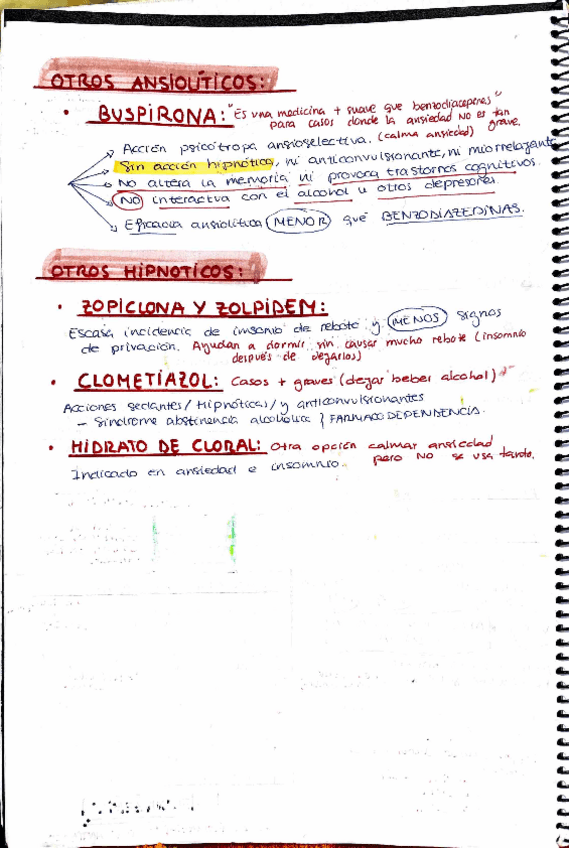 OTROS ANSIOLÍTICOS:
• BUSPIRONA: "Es una medicina + suave que benzodiacepenes"
para casos donde la ansiedad NO es tan
grave.
Acción psicótropa ansioselectiva. (calma ansiedad)
Sin acción hipnótica, ni anticonvulsionante, ni miorrelajante
No altera la memoria ni provoca trastornos cognitivos.
NO interactua con el alcohol u otros depresores.
Eficacia ansiolitica MENOR que BENZODIAZEDINAS.
OTROS HIPNOTICOS:
• ZOPICLONA Y ZOLPIDEM:
Escasa incidencia de imsonio de rebote y MENOS signos
de privación. Ayudan a dormir sin causar mucho rebote (insomnio
después de dejarlos)
• CLOMETIAZOL: Casos + graves (dejar beber alcohol)
Acciones sedantes/Hipnóticas/y anticonvulsionantes
- Sindrome abstinencia alcoholica } FARMACODEPENDENCIA.
• HIDRATO DE CLORAL: Otra opción calmar ansiedad
pero NO se usa tanto.
Indicado en ansiedad e insomnio.